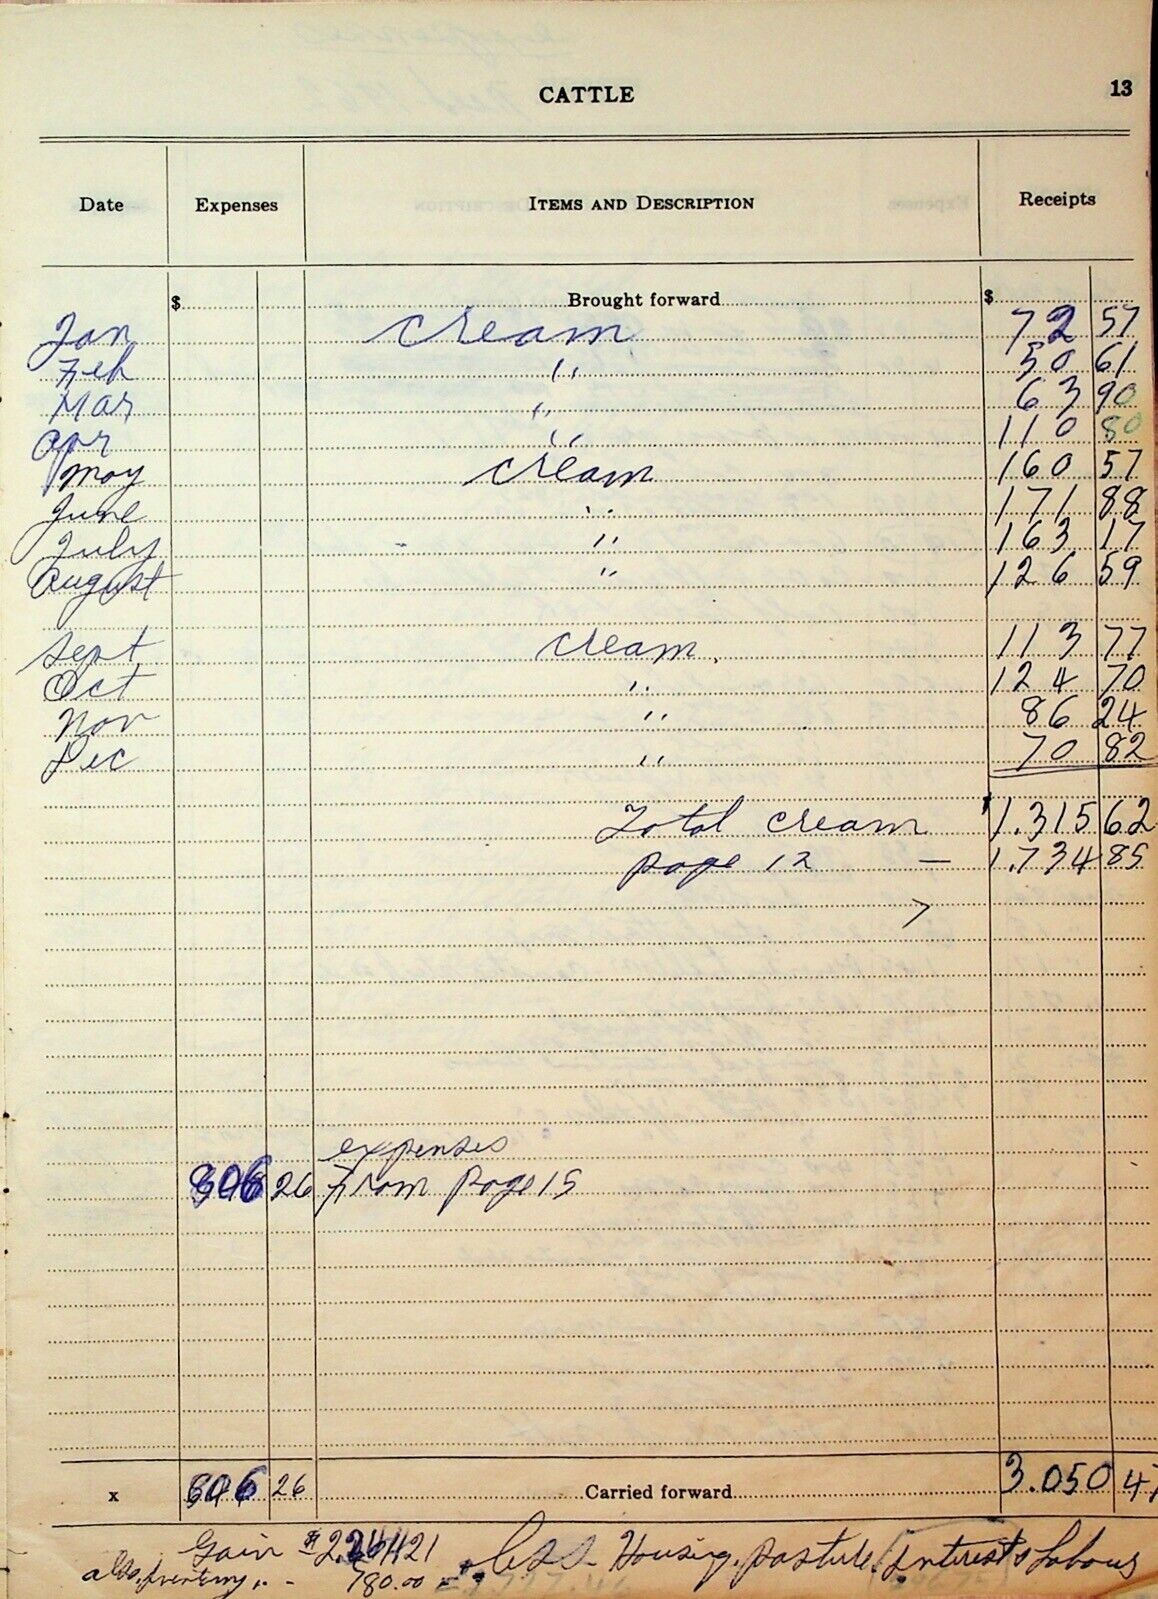 CATTLE 13
Date Expenses ITEMS AND DESCRIPTION Receipts
$ Brought forward $
Jan cream 72 57
Feb " 50 61
Mar " 63 90
Apr " 110 80
May cream 160 57
June " 171 88
July " 163 17
August " 126 59
Sept cream 113 77
Oct " 124 70
Nov " 86 24
Dec " 70 82
Total cream 1.315 62
page 12 — 1.734 85
expenses
806 26 From page 15
x 806 26 Carried forward 3.050 47
Gain $ 2.244 21 Less Housing, pasture, Interest & Labour
also inventory 780.00